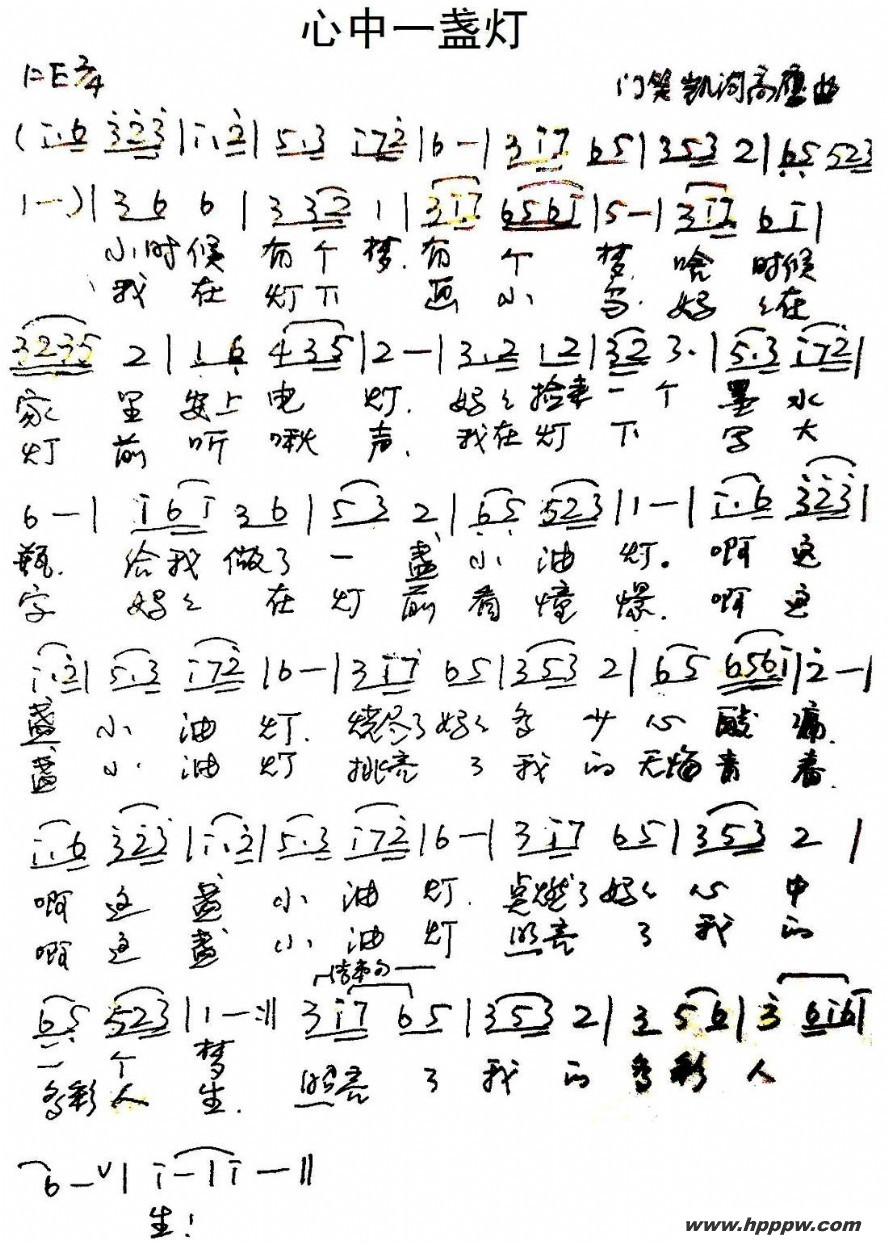 心中一盏灯
1=E 2/4 门笑凯词高 曲
(i.6 323|i.i2|5.3 i72|6-|3i7 65|353 2|65 523
1-)|36 6|332 1|3i7 656i|5-|3i7 6i|
小时候 有个梦.有个梦.啥时候
我在灯下画小鸟.妈々在
3235 2|16 435|2-|3.2 12|32 3.|5.3 i72|
家里安上电灯.妈々捡来一个墨水
灯前听 声.我在灯下写大
6-|i6i 36|53 2|65 523|1-|i.6 323|
瓶.给我做了一盏小油灯。啊这
字 妈々在灯前看憧憬.啊这
i.i2|5.3 i72|6-|3i7 65|353 2|65 656i|2-|
盏小油灯.烧尽了妈々多少心酸痛.
盏小油灯 挑亮了我的无悔青春.
i.6 323|i.i2|5.3 i72|6-|3i7 65|353 2|
啊这盏小油灯.点燃了妈々心中
啊这盏小油灯 照亮了我的
结束句
65 523|1-:‖ 3i7 65|353 2|3 56|3 6i6i|
一个梦
多彩人生. 照亮了我的多彩人
6-∨|i-|i-‖
生!
www.hpppw.com